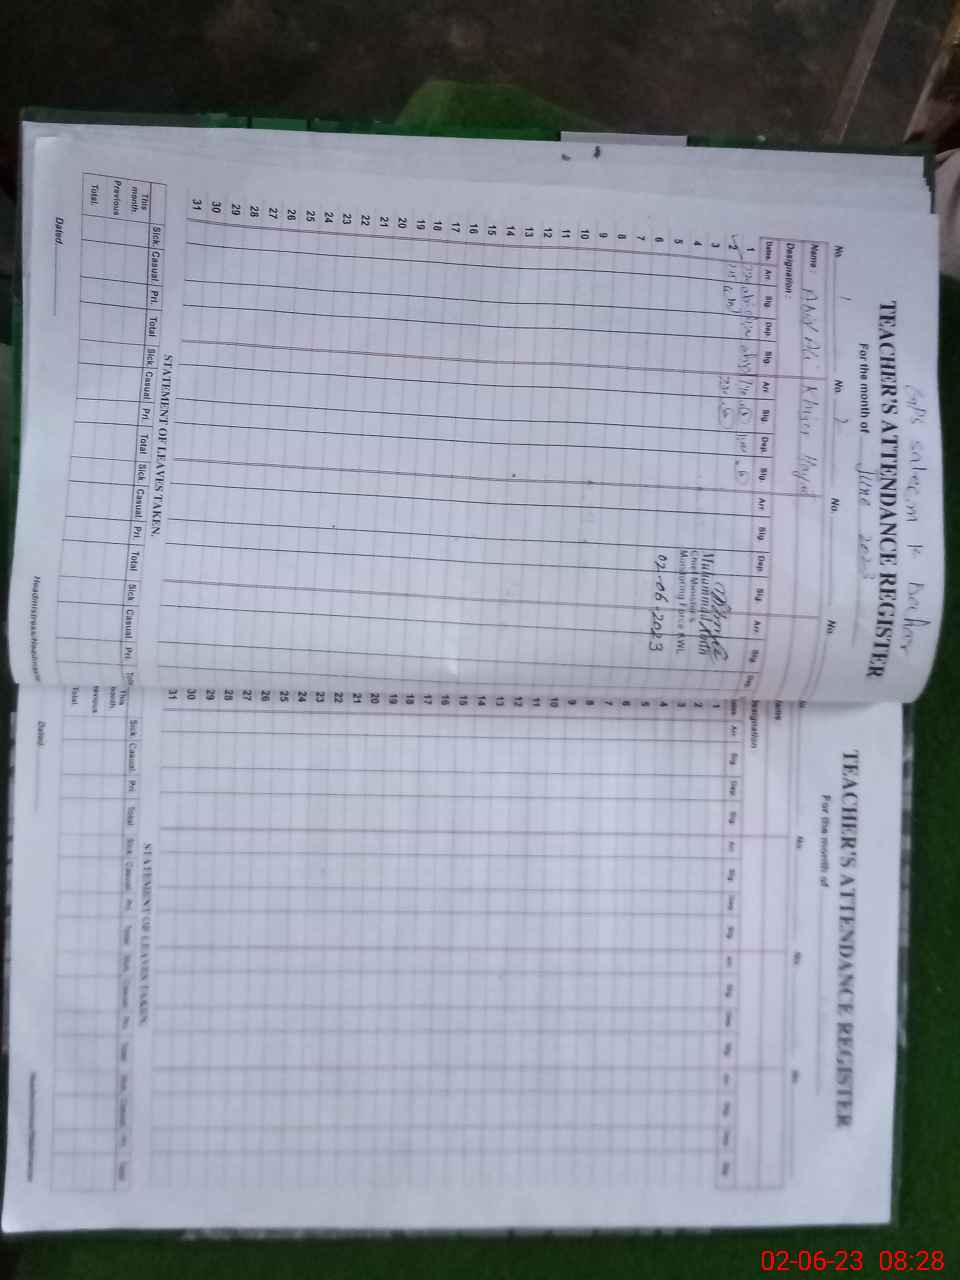 TEACHER'S ATTENDANCE REGISTER
For the month of June 2023
No. 1 No. 2 No. No.
Name:
Designation:
Dates. Arr. Sig. Dep. Sig. Arr. Sig. Dep. Sig. Arr. Sig. Dep. Sig. Arr. Sig. Dep. Sig.
1
2
3
4
5
6
7
8
9
10
11
12
13
14
15
16
17
18
19
20
21
22
23
24
25
26
27
28
29
30
31
Muhammad
Chief Minister's
Monitoring Force KWL
02-06-2023
STATEMENT OF LEAVES TAKEN.
Sick. Casual. Pri. Total Sick. Casual. Pri. Total Sick. Casual. Pri. Total Sick. Casual. Pri. Total
This month.
Previous
Total.
Dated. Headmistress/Headmaster
TEACHER'S ATTENDANCE REGISTER
For the month of
No. No. No.
Designation
Arr. Sig. Dep. Sig. Arr. Sig. Dep. Sig. Arr. Sig. Dep. Sig. Arr. Sig. Dep. Sig.
1
2
3
4
5
6
7
8
9
10
11
12
13
14
15
16
17
18
19
20
21
22
23
24
25
26
27
28
29
30
31
STATEMENT OF LEAVES TAKEN.
Sick. Casual. Pri. Total Sick. Casual. Pri. Total Sick. Casual. Pri. Total Sick. Casual. Pri. Total
This month.
Total.
Dated. Headmistress/Headmaster
02-06-23 08:28